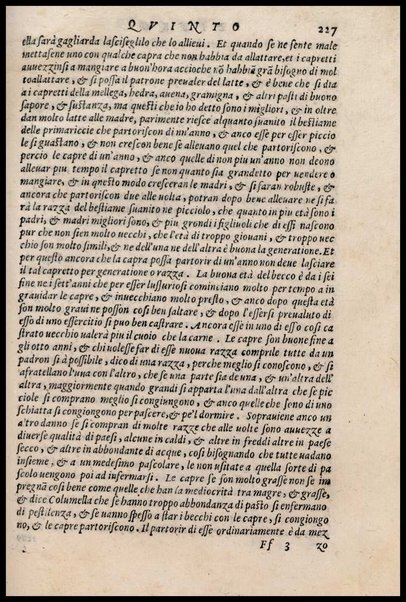 QVINTO 227
ella sarà gagliarda lascisegli lo che lo allieui. Et quando se ne sente male
mettasene uno con qualche capra che non habbia da allattare, et i capretti
auuezzinsi a mangiare a buon'hora accioche nō habbiā grā bisogno di mol
to allattare, & si possa il patrone preualer del latte, & è bene che si dia
a i capretti della mellega, hedra, auena, gramigna, & altri pasti di buono
sapore, & sustanza, ma questi che io ho detto sono i migliori, & in oltre
dan molto latte alle madre, parimente riesce alquanto suanito il bestiame
delle primariccie che partoriscon di un'anno, & anco esse per esser piccio
le si guastano, & non crescon bene se alleuano quel che partoriscono, &
percio le capre di un'anno, & anco quelle di non piu un'anno non deono
alleuar piu tempo il capretto se non quanto sia grandetto per uendere o
mangiare, & in questo modo cresceran le madri, & si faran robuste, &
ancora che partoriscon due alle uolta, potran dopo bene alleuare ne si fa
rà la razza del bestiame suanito ne picciolo, che quanto in piu età sono i
padri, & madri migliori sono, & piu grondi i figliuoli che di essi nascono
pur che non sien molto uecchi, che l'età di troppo giouani, & troppo uec
chio son molto simili, & ne dell'una ne dell'altra è buona la generatione. Et
per questo ancora che la capra possa partorir di un'anno non deue lasciare
il tal capretto per generatione o razza. La buona età del becco è da i sei
fine ne i sett'anni che per esser lussuriosi cominciano molto per tempo a in
grauidar le capre, & inuecchiano molto presto, & anco dopo questa età
son molto graui ne posson cosi ben saltare, & dopo l'essersi preualuto di
esso di uno essercitio si puo ben castrare. Ancora esse in uno di esso cosi ca
strato uecchio ualerà piu il cuoio che la carne. Le capre son buone fine a
gli otto anni, & chi uolesse far di esse nuoua razza comprile tutte da un
padron si à possibile, dico di una razza, perche meglio si conoscono, & si
afratellano l'una con l'altro, che se una parte sia de una, & un'altra dell'
altra, maggiormente quando grandi si apparta l'una dall'altra che se pic
ciole si comprano meglio si congiungono, & anco quelle che sono di uno
schiatta si congiongono per pascere, & pe'l dormire. Soprauiene anco un
a'tro danno se si compran di molte razze che alle uolte sono auuezze a
diuerse qualità di paesi, alcune in caldi, & altre in freddi altre in paese
secco, & altre in abbondante di acque, cosi bisognando che tutte uadano
insieme, & a un medesimo pascolare, le non usitate a quella sorte di pa
scolo uengono poi ad infermarsi. Le capre se son molto grasse non se im
pregnā cosi bene come quelle che han la mediocrità tra magre, & grasse,
& dice Columella che se hanno troppo abbondanza di pasto si enfermano
di pestilenza, & se uanno spesso a star i becchi con le capre, si congiongo
no, & le capre partoriscono. Il partorir di esse ordinariamente è da mez
Ff 3 zo